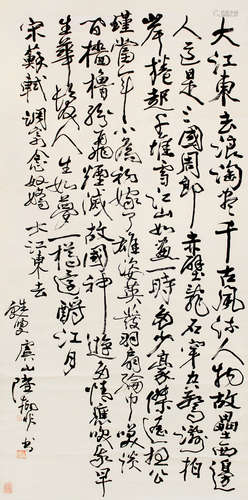 大江東去浪淘盡千古風流人物故壘西邊
人道是三國周郎赤壁亂石穿空驚濤拍
岸捲起千堆雪江山如畫一時多少豪傑遙想公
瑾當年小喬初嫁了雄姿英發羽扇綸巾笑談
間檣櫓灰飛煙滅故國神遊多情應笑我早
生華髮人生如夢一樽還酹江月
宋蘇軾調寄念奴嬌 大江東去
甦叟虞山陸抑非書